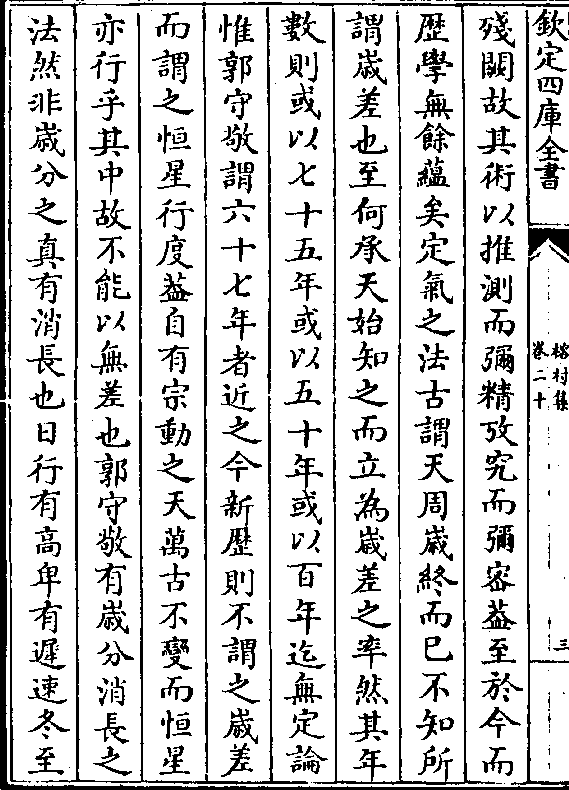 欽定四庫全書
榕村集
卷二十
三
殘闕故其術以推測而彌精攷究而彌密葢至於今而
歴學無餘蘊矣定氣之法古謂天周歲終而已不知所
謂歲差也至何承天始知之而立為歲差之率然其年
數則或以七十五年或以五十年或以百年迄無定論
惟郭守敬謂六十七年者近之今新歴則不謂之歲差
而謂之恒星行度葢自有宗動之天萬古不變而恒星
亦行乎其中故不能以無差也郭守敬有歲分消長之
法然非歲分之真有消長也日行有高卑有遲速冬至